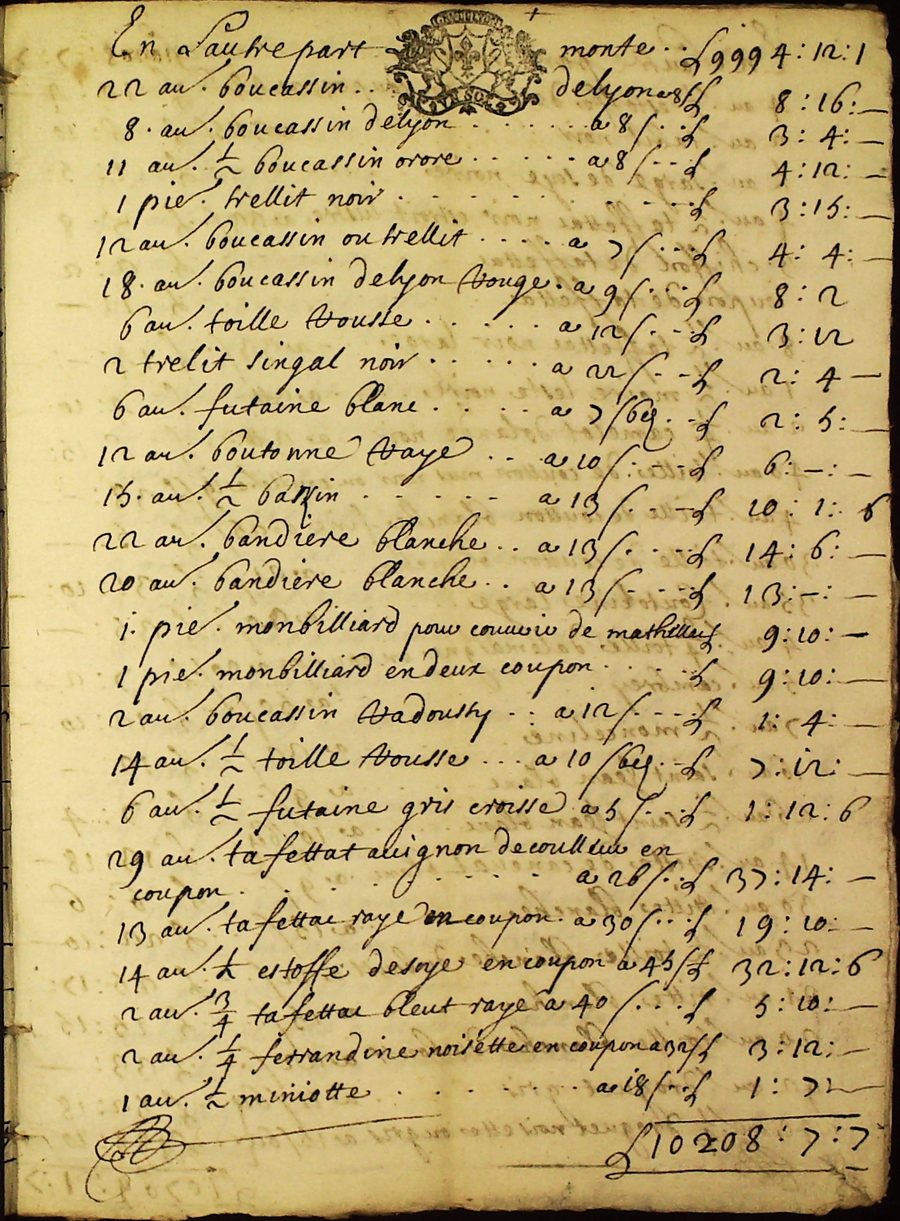 En Lautre part monte . . £ 9994 : 12 : 1
22 au. boucassin . . delyon a 8 ſ £ 8 : 16 : —
8 . au . boucassin delyon . . . . . . a 8 ſ . . . £ 3 : 4 : —
11 au . ½ boucassin orore . . . . . a 8 ſ . . . £ 4 : 12 : —
1 pie . trellit noir . . . . . . . . . £ 3 : 15 : —
12 au . boucassin ou trellit . . . . . a 7 ſ . . . £ 4 : 4 : —
18 . au . boucassin delyon Rouge . a 9 ſ . . . £ 8 : 2
6 au . toille Rousse . . . . . a 12 ſ . . . £ 3 : 12
2 trelit singal noir . . . . . a 22 ſ . . . £ 2 : 4 —
6 au . futaine blanc . . . . a 7 ſ 6 d . . £ 2 : 5 : —
12 au . boutonne Raye . . a 10 ſ . . . £ 6 : — : —
15 . au . ½ bassin . . . . . . a 13 ſ . . . £ 10 : 1 : 6
22 au . bandiere blanche . . a 13 ſ . . . . £ 14 : 6 : —
20 au . bandiere blanche . . a 13 ſ . . . . £ 13 : — : —
1 . pie . monbilliard pour couvrir de 9 : 10 : —
1 pie . monbilliard en deux coupon . . . . £ 9 : 10 : —
2 au . boucassin . . a 12 ſ . . . £ 1 : 4 : —
14 au . ½ toille Rousse . . . a 10 ſ 6 d . . £ 7 : 12 : —
6 au . ½ futaine gris croisse a 5 ſ . . . £ 1 : 12 : 6
29 au . tafettat auignon decoulleur en
coupon . . . . . . . a 26 ſ . . £ 37 : 14 : —
13 au . tafettac raye en coupon . a 30 ſ . . . £ 19 : 10 : —
14 au . ½ estoffe desoye en coupon a 45 ſ £ 32 : 12 : 6
2 au . ¾ tafettac bleut raye a 40 ſ . . . £ 5 : 10 : —
2 au . ¼ ferrandine noisette en coupon a 32 ſ £ 3 : 12 : —
1 au . ½ miniotte . . . . . . a 18 ſ . . £ 1 : 7 : —
£ 10208 : 7 : 7